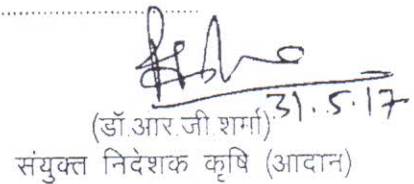 31.5.17
(डॉ.आर.जी.शर्मा)
संयुक्त निदेशक कृषि (आदान)